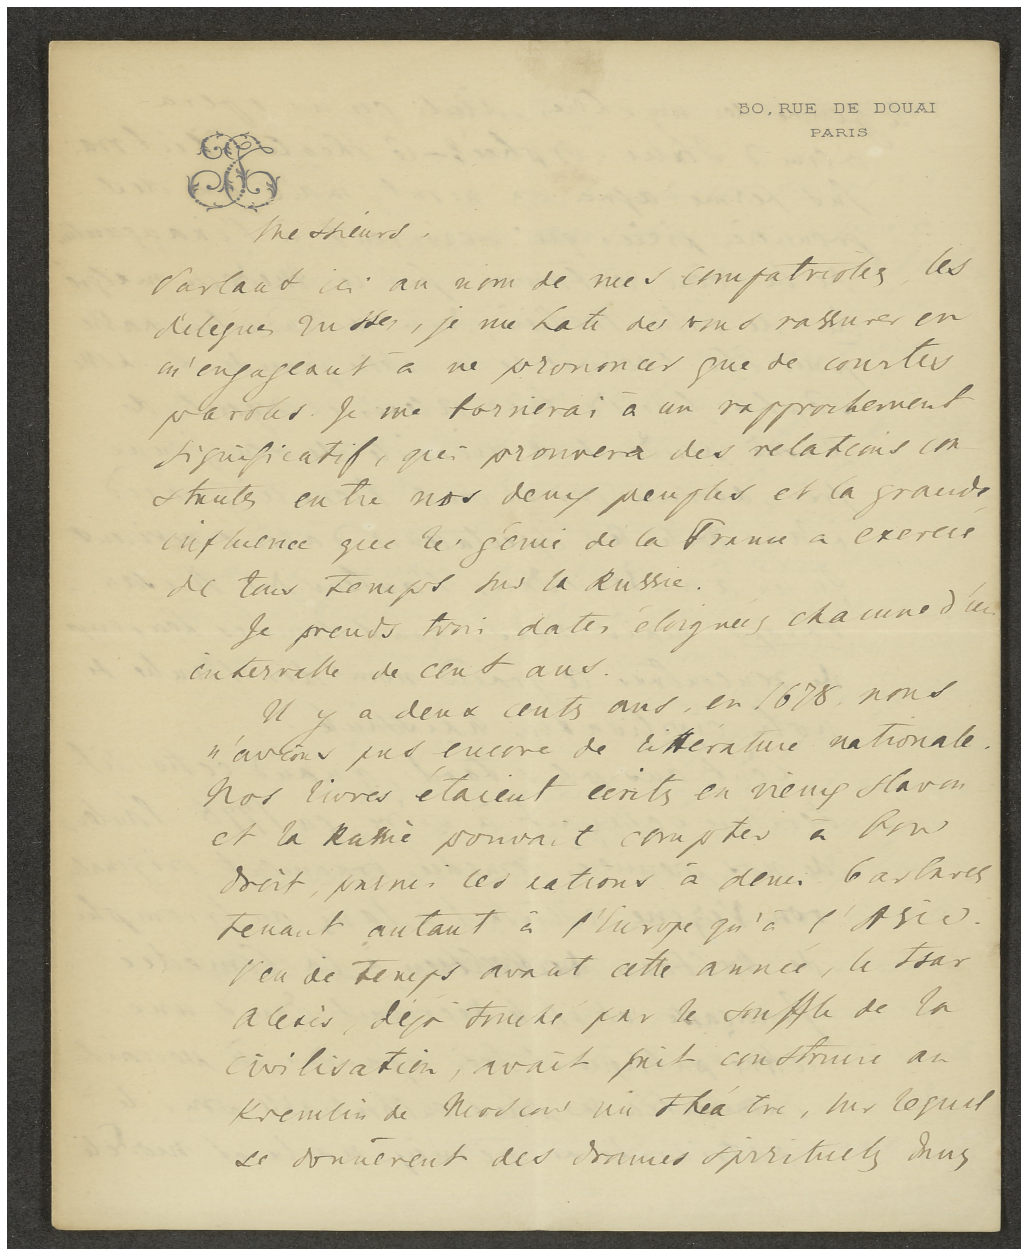 50, RUE DE DOUAI
PARIS
Messieurs.
Parlant ici au nom de mes compatriotes, les
délégués russes, je me hâte de vous rassurer en
m'engageant à ne prononcer que de courtes
paroles. Je me bornerai à un rapprochement
significatif, qui prouvera des relations con
stantes entre nos deux peuples et la grande
influence que le génie de la France a exercé
de tous temps sur la Russie.
Je prends trois dates éloignées chacune d'un
intervalle de cent ans.
Il y a deux cents ans, en 1678, nous
n'avions pas encore de littérature nationale.
Nos livres étaient écrits en vieux slavon
et la Russie pouvait compter à bon
droit, parmi les nations à demi barbares
tenant autant à l'Europe qu'à l'Asie.
Peu de temps avant cette année, le tsar
Alexis, déjà touché par le souffle de la
civilisation, avait fait construire au
Kremlin de Moscou un théâtre, sur lequel
se donnèrent des drames spirituels